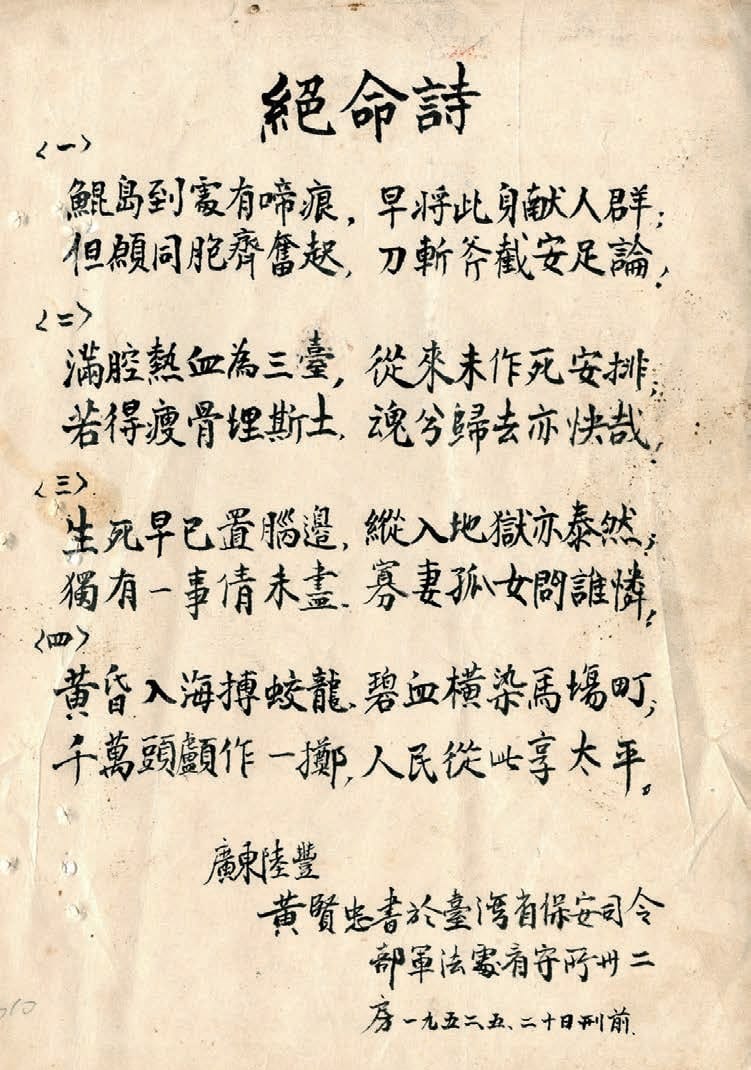 絕命詩
<一>
鯤島到處有啼痕，早將此身献人群；
但願同胞齊奮起，刀斬斧截安足論！
<二>
滿腔熱血為三臺，從來未作死安排；
若得瘦骨埋斯土，魂兮歸去亦快哉！
<三>
生死早已置腦邊，縱入地獄亦泰然；
獨有一事情未盡、寡妻孤女問誰憐！
<四>
黃昏入海搏蛟龍、碧血橫染馬場町；
千萬頭顱作一擲，人民從此享太平。
廣東陸豐
黃賢忠書於臺灣省保安司令
部軍法處看守所卅二
房一九五二、五、二十日刑前